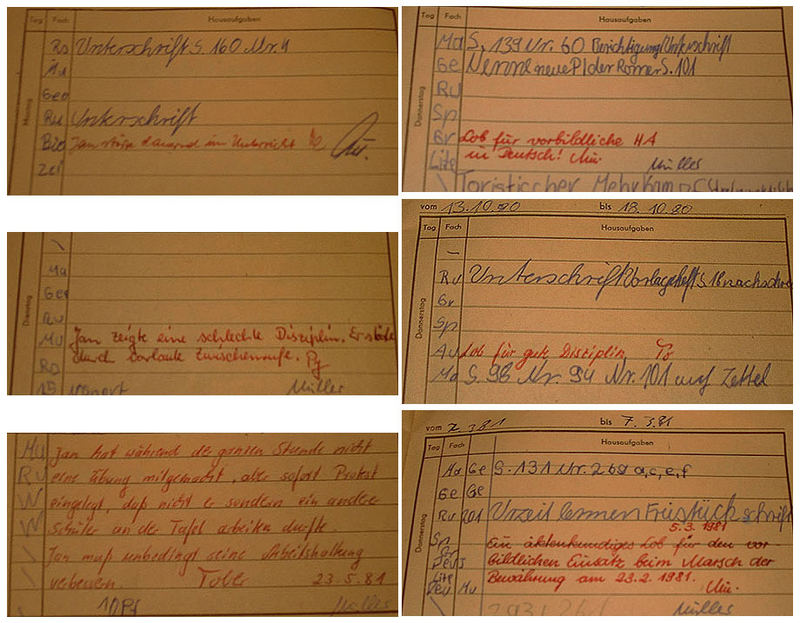 Tag Fach Hausaufgaben
Rs Unterschrift S. 160 Nr. 4
Mu
Geo
Ru Unterschrift
Bio Jan störte dauernd im Unterricht
Zei
Montag
Ma
Geo
Ru
Mu Jan zeigte eine schlechte Disziplin. Er störte
durch vorlaute Zwischenrufe.
Müller
Dienstag
Mu Jan hat während der ganzen Stunde nicht
Ru eine Übung mitgemacht, aber sofort Protest
W eingelegt, daß nicht er sondern ein andere
W Schüler an der Tafel arbeiten durfte.
Jan muß unbedingt seine Arbeitshaltung
verbessern. Tober 23.5.81
Müller
Tag Fach Hausaufgaben
Ma S. 139 Nr. 60 Berichtigung Unterschrift
Ge Nenne neue Pl der Römer S. 101
Ru
Sp
Gr Lob für vorbildliche HA
in Deutsch! Mü.
Müller
Donnerstag
vom 13.10.80 bis 18.10.80
Tag Fach Hausaufgaben
Ru Unterschrift Vorlageheft S. 18 nachschre
Gr
Sp
Au Lob für gute Disziplin To
Ma S. 98 Nr. 94 Nr. 101 auf Zettel
Donnerstag
vom 2.3.81 bis 7.3.81
Tag Fach Hausaufgaben
Ma Ge S. 131 Nr. 269 a, c, e, f
Ge Ge
Ru Urzeit lernen Früstück schrift
5.3.1981
Ein aktenkundiges Lob für den vor
bildlichen Einsatz beim Marsch der
Bewährung am 23.2.1981.
Mü.
Müller
Donnerstag